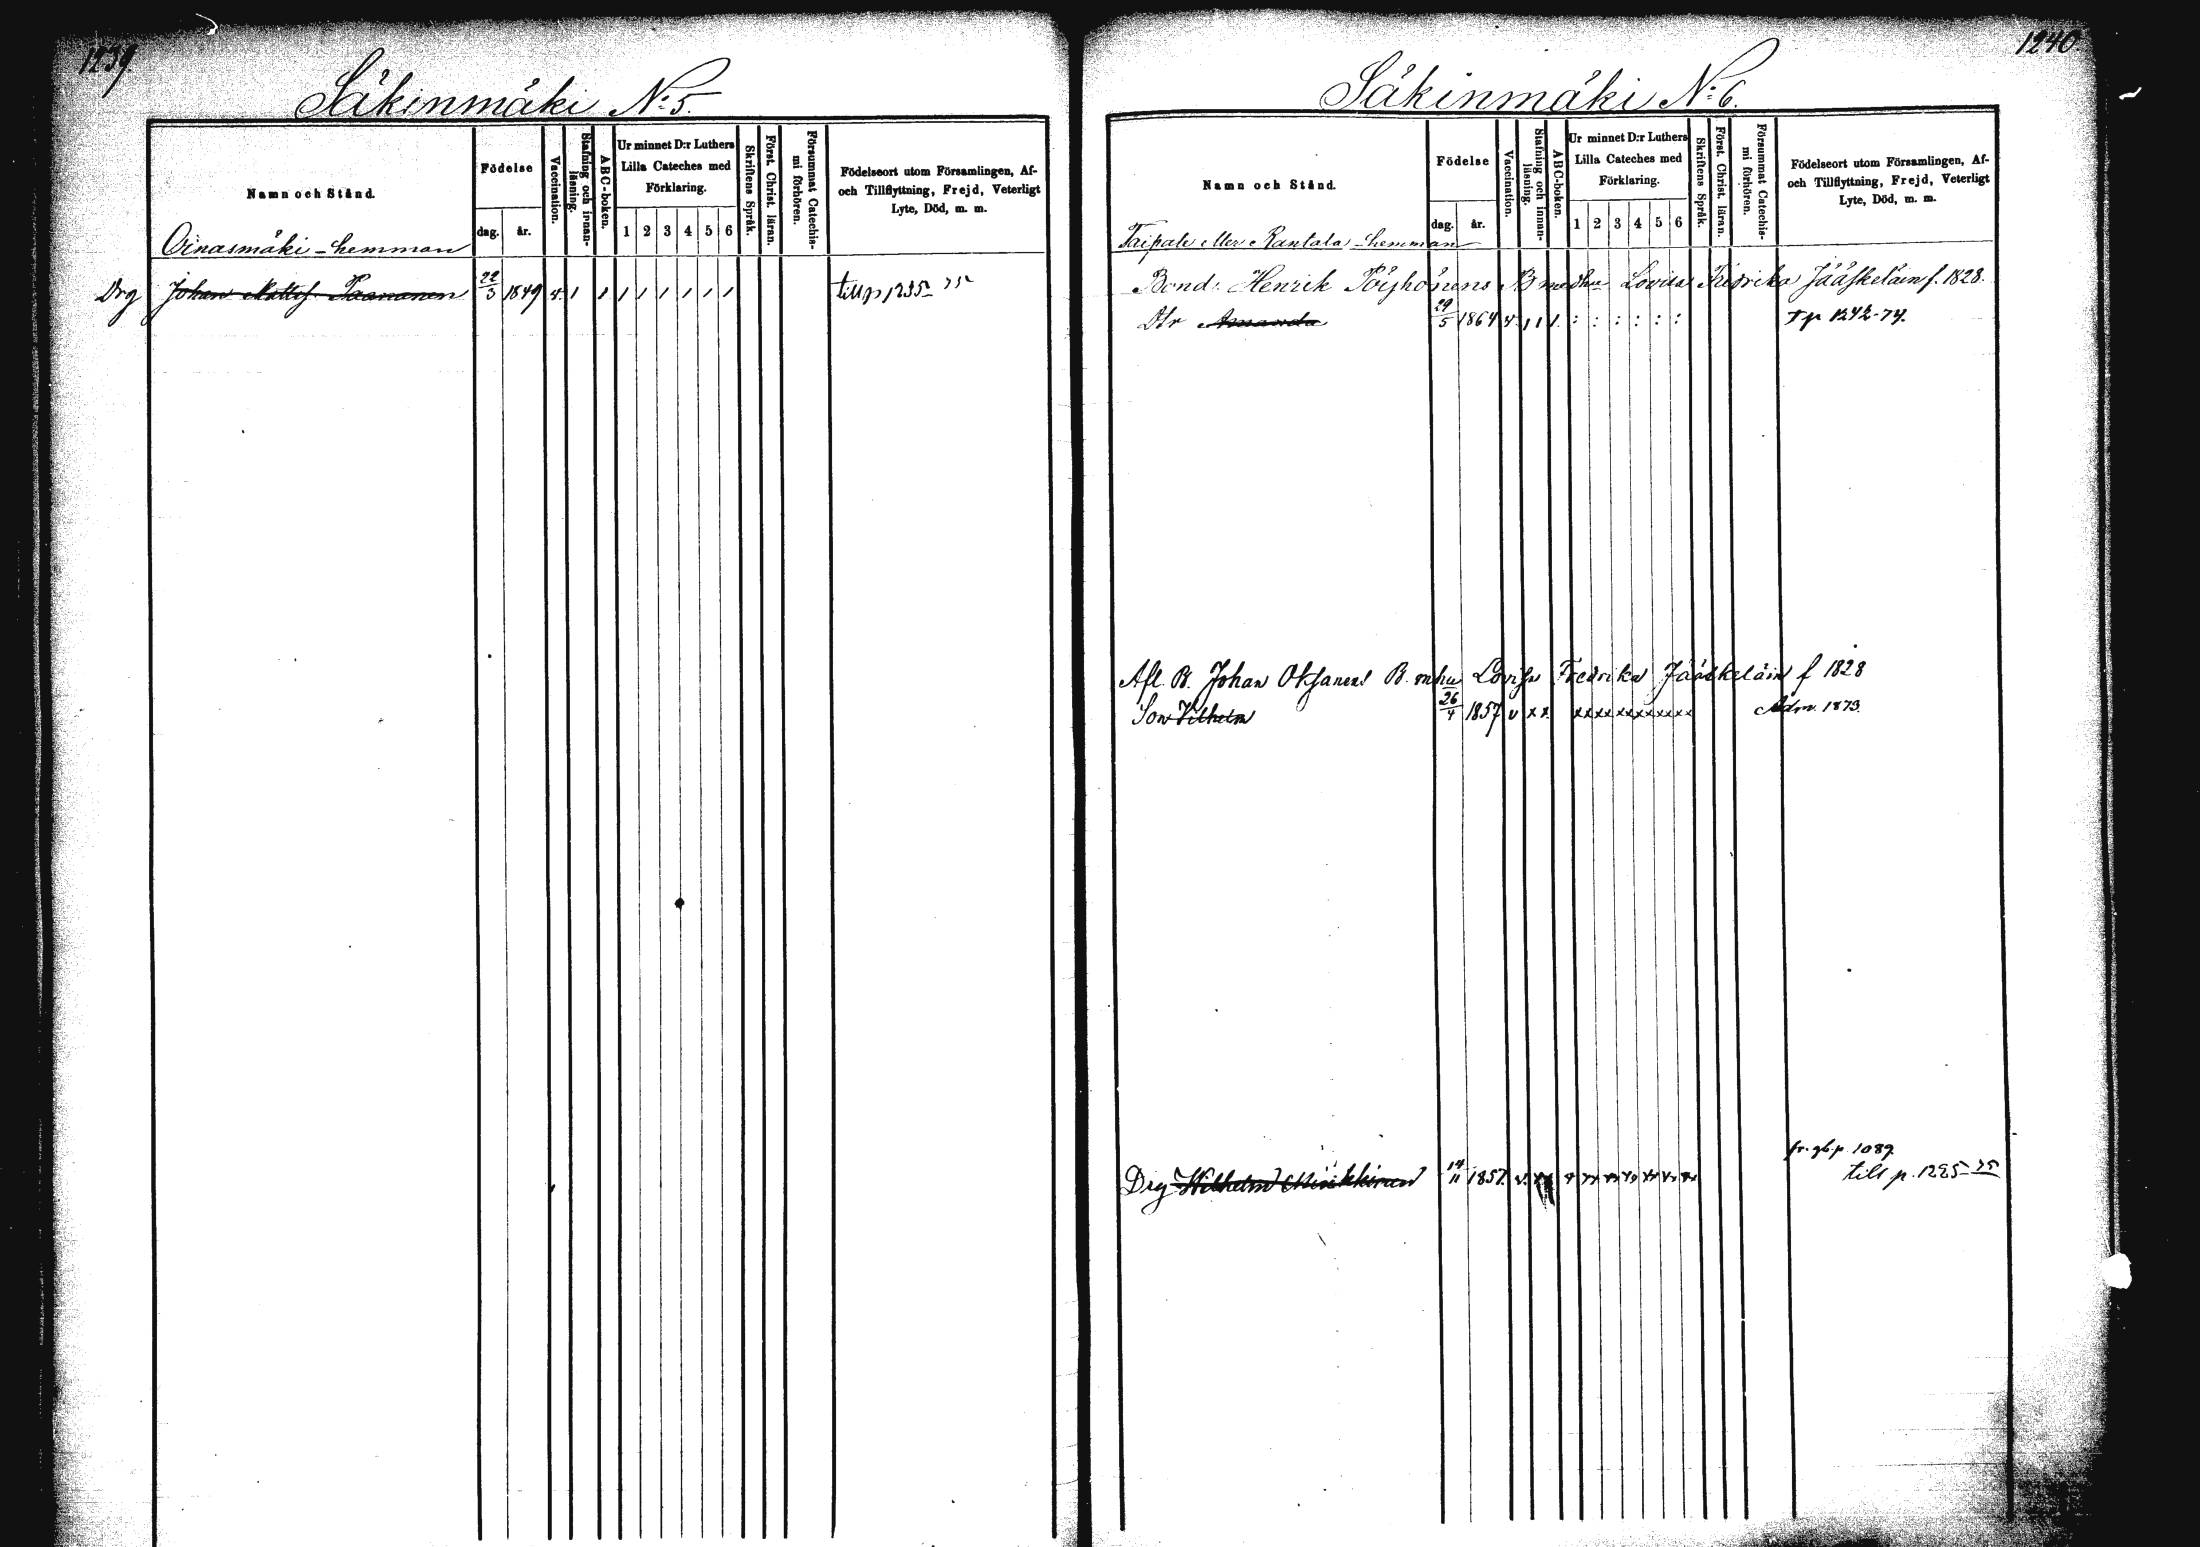 1239.
Säkinmäki N:5.
Namn och Stånd.
Födelse
dag.
år.
Vaccination.
Stafning och innanläsning.
ABC-boken.
Ur minnet D:r Luthers
Lilla Cateches med
Förklaring.
1 2 3 4 5 6
Skriftens Språk.
Först. Christ. läran.
Försummat Catechismi förhören.
Födelseort utom Församlingen, Af-
och Tillflyttning, Frejd, Veterligt
Lyte, Död, m. m.
Oinasmäki - hemman
Drg Johan Mattsf. Paananen 22/3 1849 v. / / / / / / / / till p 1235 75
1240.
Säkinmäki N:6.
Namn och Stånd.
Födelse
dag.
år.
Vaccination.
Stafning och innanläsning.
ABC-boken.
Ur minnet D:r Luthers
Lilla Cateches med
Förklaring.
1 2 3 4 5 6
Skriftens Språk.
Först. Christ. läran.
Försummat Catechismi förhören.
Födelseort utom Församlingen, Af-
och Tillflyttning, Frejd, Veterligt
Lyte, Död, m. m.
Taipale eller Rantala - hemman
Bond: Henrik Pöyhönens B med hu Lovisa Fredrika Jääskeläin f. 1828.
Dtr Amanda 29/5 1864 v. / / /. : : : : : : T p 1242-74.
Afl. B. Johan Oksanens B. m hu Lovisa Fredrika Jääskeläin f 1828
Son Vilhelm 26/4 1857 v x x xxxx xxxxxxx Adm. 1873.
fr. gb. p. 1089.
Drg Wilhelm Minkkinen 14/11 1857. v. till p. 1285-75